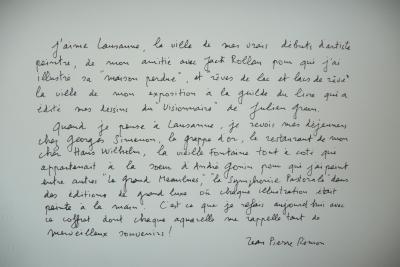 J'aime Lausanne, la ville de mes vrais débuts d'article
peintre, de mon amitié avec Jack Rollan pour qui j'ai
illustré sa "maison perdue", et "rêves de lac et lacs de rêve"
la ville de mon exposition à la guilde du livre qui a
édité mes dessins du "Visionnaire" de Julien Green.
Quand je pense à Lausanne, je revois mes déjeuners
chez Georges Simenon, la grappe d'or, le restaurant de mon
cher Hans Wilhelm, la vieille Fontaine tout à côté qui
appartenait à la soeur d'André Gonin pour qui j'ai peint
entre autres "le Grand Meaulnes", "la Symphonie Pastorale" dans
des éditions de grand luxe où chaque illustration était
peinte à la main. C'est ce que je refais aujourd'hui avec
ce coffret dont chaque aquarelle me rappelle tant de
merveilleux souvenirs !
Jean Pierre Remon